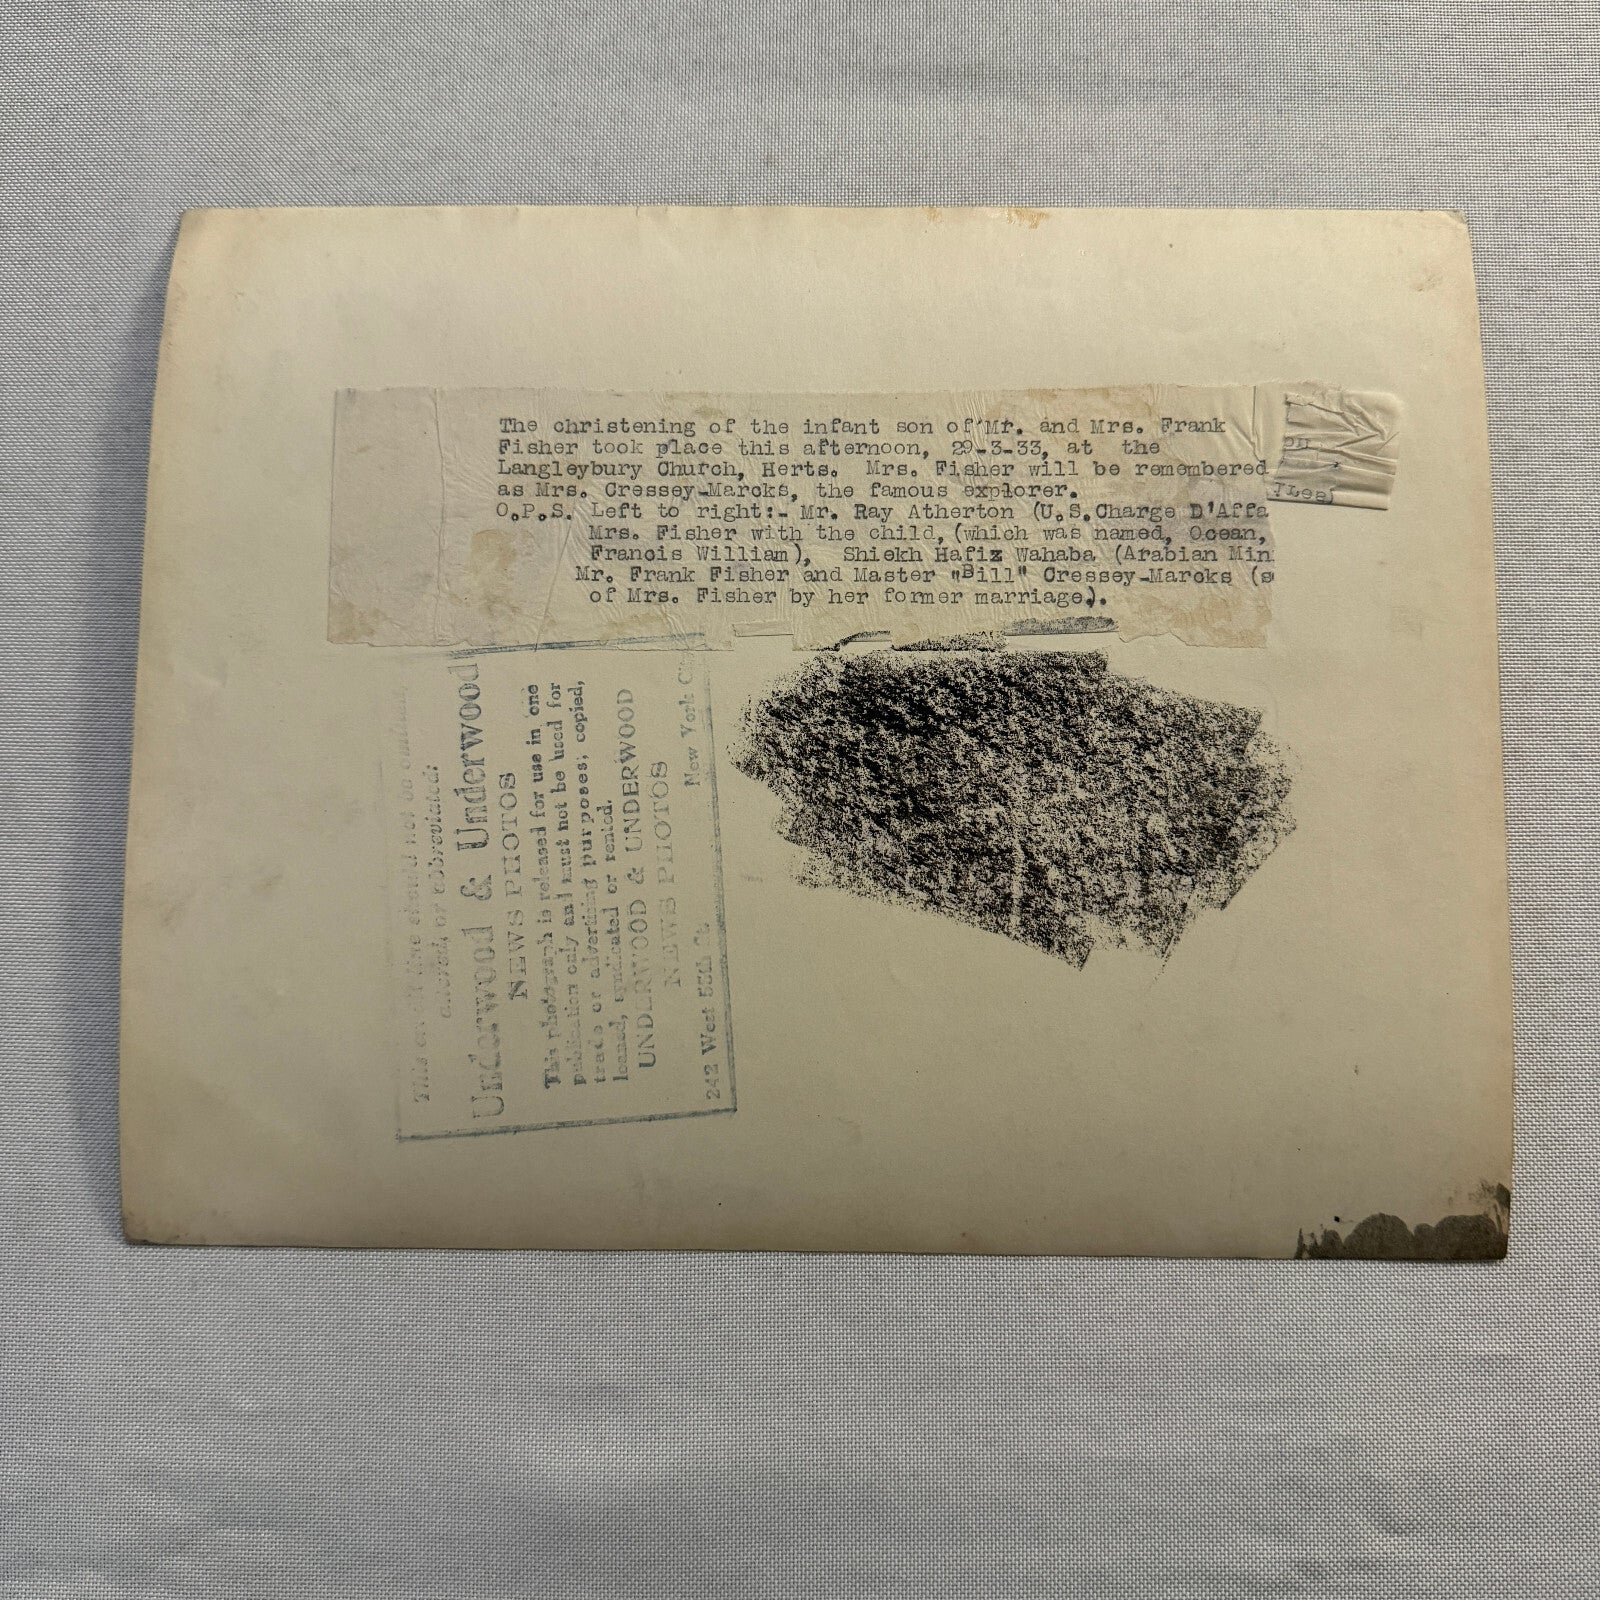 The christening of the infant son of Mr. and Mrs. Frank
Fisher took place this afternoon, 29-3-33, at the
Langleybury Church, Herts. Mrs. Fisher will be remembered
as Mrs. Cressey-Marcks, the famous explorer.
O.P.S. Left to right:- Mr. Ray Atherton (U.S.Charge D'Affa
Mrs. Fisher with the child, (which was named, Ocean,
Francis William), Shiekh Hafiz Wahaba (Arabian Min
Mr. Frank Fisher and Master "Bill" Cressey-Marcks (s
of Mrs. Fisher by her former marriage).
This should not be
altered, or abbreviated:
Underwood & Underwood
NEWS PHOTOS
This photograph is released for use in one
publication only and must not be used for
trade or advertising purposes; copied,
loaned, syndicated or rented.
UNDERWOOD & UNDERWOOD
NEWS PHOTOS
242 West 55th St. New York City